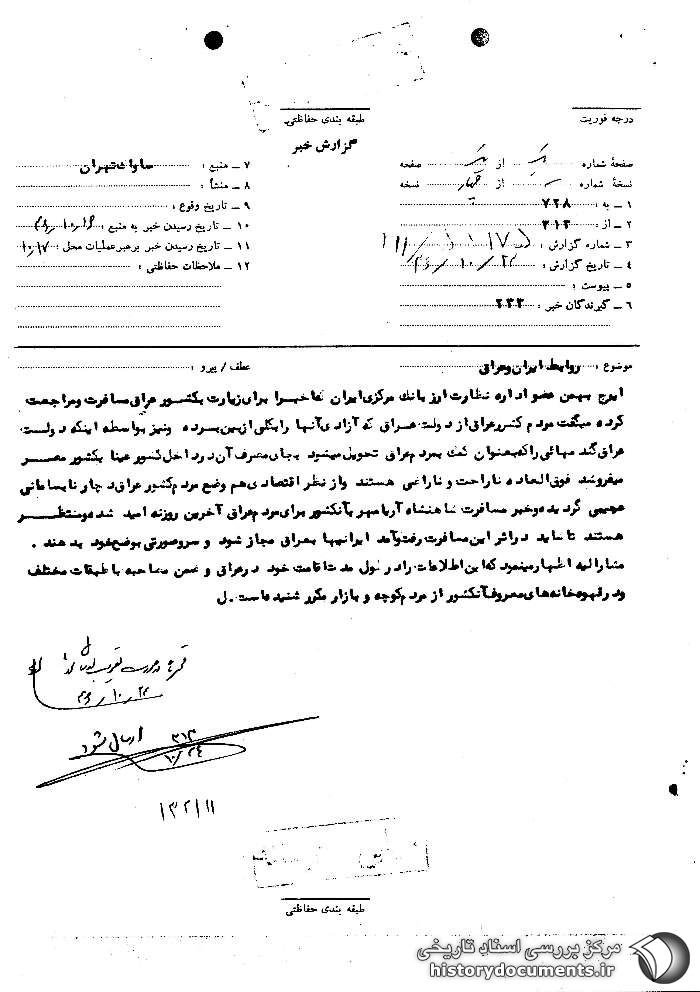 درجه فوریت
طبقه بندی حفاظتی
گزارش خبر
صفحهٔ شماره یک از یک صفحه
نسخهٔ شماره از چهار نسخه
۱ ـ به : ۷۲۸
۲ ـ از : ۳۱۲
۳ ـ شماره گزارش :
۴ ـ تاریخ گزارش : ۲۲/۱۰/۴۶
۵ ـ پیوست :
۶ ـ گیرندگان خبر : ۲۳۳
۷ ـ منبع : ساواک تهران
۸ ـ منشأ :
۹ ـ تاریخ وقوع :
۱۰ ـ تاریخ رسیدن خبر به منبع :
۱۱ ـ تاریخ رسیدن خبر برهبر عملیات محل : ۱۰/۱۷
۱۲ ـ ملاحظات حفاظتی :
موضوع : روابط ایران و عراق
عطف / پیرو :
ایرج بهمن عضو اداره نظارت ارز بانک مرکزی ایران که اخیرا برای زیارت بکشور عراق مسافرت و مراجعت
کرده میگفت مردم کشور عراق از دولت عراق که آزادی آنها را بکلی از بین برده و نیز بواسطه اینکه دولت
عراق گندمهائی را که بعنوان کمک بمردم عراق تحویل میشود بجای مصرف آن در داخل کشور عینا بکشور مصر
میفروشد فوق العاده ناراحت و ناراضی هستند و از نظر اقتصادی هم وضع مردم کشور عراق دچار نابسامانی
عجیبی گردیده و خبر مسافرت شاهنشاه آریامهر بآنکشور برای مردم عراق آخرین روزنه امید شده و منتظر
هستند تا شاید در اثر این مسافرت رفت و آمد ایرانیها بعراق مجاز شود و سر و صورتی بوضع خود بدهند .
مشارالیه اظهار مینمود که این اطلاعات را در طول مدت اقامت خود در عراق و ضمن مصاحبه با طبقات مختلف
و در قهوه خانه های معروف آنکشور از مردم کوچه و بازار مکرر شنیده است . ل
۴۶/۱۰/۲۲
۳۱۲ ارسال شود
۱۰/۲۴
۱۳۲۱۱۱
طبقه بندی حفاظتی
مرکز بررسی اسناد تاریخی
historydocuments.ir